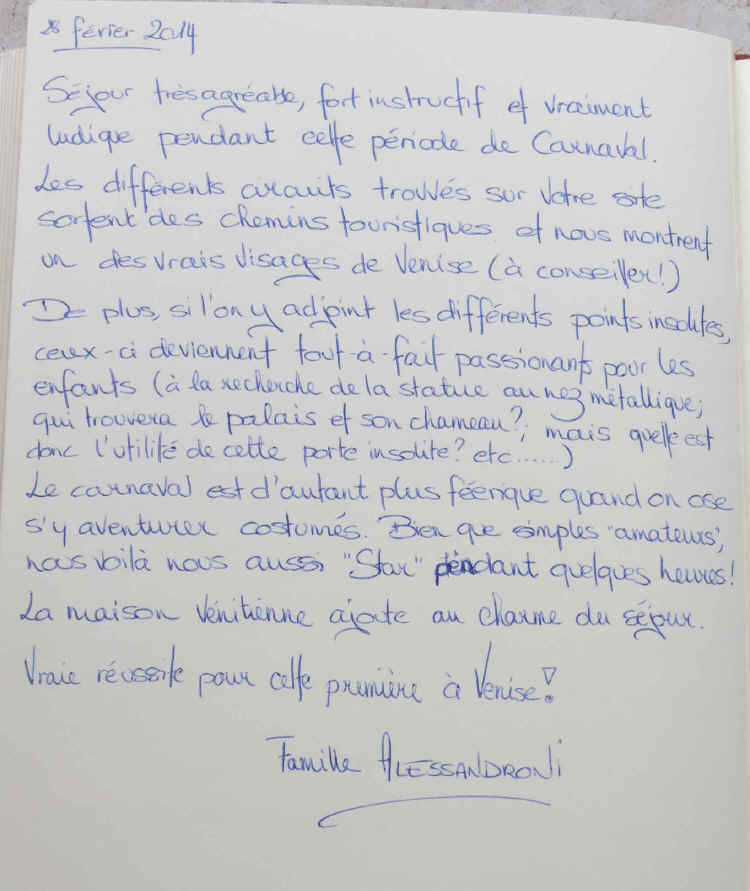 28 févier 2014
Séjour très agréable, fort instructif et vraiment
ludique pendant cette période de Carnaval.
Les différents circuits trouvés sur votre site
sortent des chemins touristiques et nous montrent
un des vrais visages de Venise (à conseiller!)
De plus, si l'on y adjoint les différents points insolites,
ceux-ci deviennent tout-à-fait passionants pour les
enfants (à la recherche de la statue au nez métallique;
qui trouvera le palais et son chameau?; mais quelle est
donc l'utilité de cette porte insolite? etc......)
Le carnaval est d'autant plus féerique quand on ose
s'y aventurer costumés. Bien que simples "amateurs",
nous voilà nous aussi "Star" pendant quelques heures!
La maison vénitienne ajoute au charme du séjour.
Vraie réussite pour cette première à Venise!
Famille ALESSANDRONi